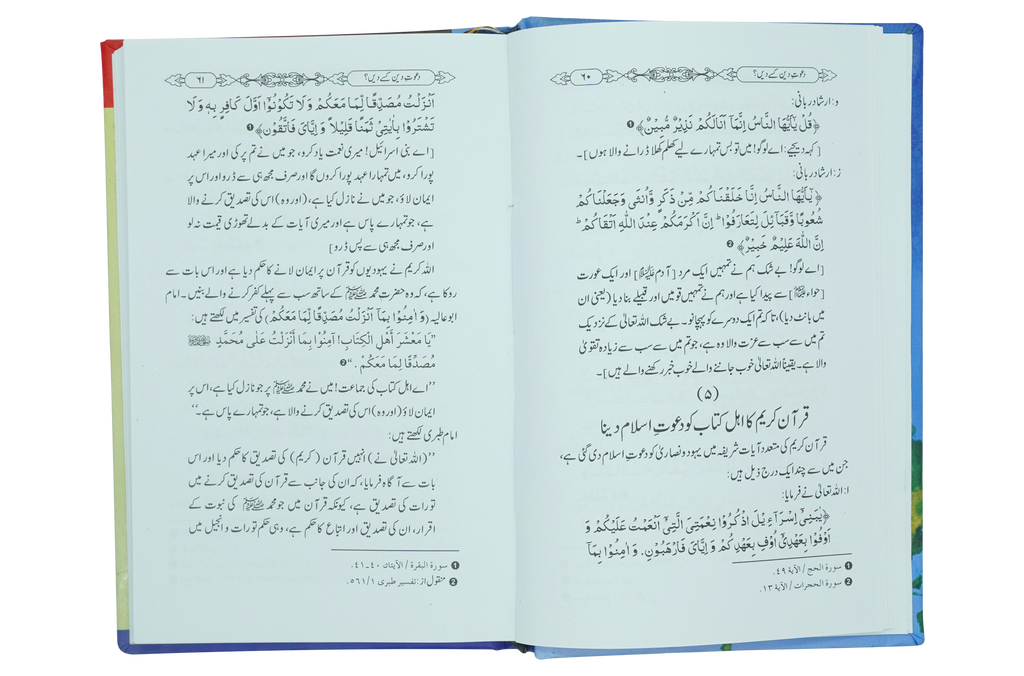 ۶۰
دعوتِ دین کسے دیں؟
و: ارشادِ ربانی:
﴿قُلْ يٰٓاَيُّهَا النَّاسُ اِنَّمَآ اَنَالَكُمْ نَذِيْرٌ مُّبِيْنٌ﴾ ❶
[کہہ دیجیے: اے لوگو! میں تو بس تمہارے لیے کھلم کھلا ڈرانے والا ہوں]۔
ز: ارشادِ ربانی:
﴿يٰٓاَيُّهَا النَّاسُ اِنَّا خَلَقْنَاكُمْ مِّنْ ذَكَرٍ وَّاُنْثٰى وَجَعَلْنَاكُمْ
شُعُوْبًا وَّقَبَآئِلَ لِتَعَارَفُوْا ؕ اِنَّ اَكْرَمَكُمْ عِنْدَ اللّٰهِ اَتْقَاكُمْ ؕ
اِنَّ اللّٰهَ عَلِيْمٌ خَبِيْرٌ﴾ ❷
[اے لوگو! بے شک ہم نے تمہیں ایک مرد [آدم علیہ السلام] اور ایک عورت
[حواء علیہا السلام] سے پیدا کیا ہے اور ہم نے تمہیں قومیں اور قبیلے بنا دیا (یعنی ان
میں بانٹ دیا)، تا کہ تم ایک دوسرے کو پہچانو۔ بے شک اللہ تعالیٰ کے نزدیک
تم میں سے سب سے عزت والا وہ ہے، جو تم میں سب سے زیادہ تقویٰ
والا ہے۔ یقیناً اللہ تعالیٰ خوب جاننے والے خوب خبر رکھنے والے ہیں]۔
(۵)
قرآن کریم کا اہل کتاب کو دعوتِ اسلام دینا
قرآن کریم کی متعدد آیات شریفہ میں یہود و نصاریٰ کو دعوتِ اسلام دی گئی ہے،
جن میں سے چند ایک درج ذیل ہیں:
ا: اللہ تعالیٰ نے فرمایا:
﴿يٰبَنِيْٓ اِسْرَآءِيْلَ اذْكُرُوْا نِعْمَتِيَ الَّتِيْٓ اَنْعَمْتُ عَلَيْكُمْ وَ
اَوْفُوْا بِعَهْدِيْٓ اُوْفِ بِعَهْدِكُمْ وَ اِيَّايَ فَارْهَبُوْنِ. وَ اٰمِنُوْا بِمَآ
❶ سورة الحج / الآية ٤٩.
❷ سورة الحجرات / الآية ١٣.
۶۱
دعوتِ دین کسے دیں؟
اَنْزَلْتُ مُصَدِّقًا لِّمَا مَعَكُمْ وَ لَا تَكُوْنُوْٓا اَوَّلَ كَافِرٍ بِهٖ وَ لَا
تَشْتَرُوْا بِاٰيٰتِيْ ثَمَنًا قَلِيْلًا وَ اِيَّايَ فَاتَّقُوْنِ﴾ ❶
[اے بنی اسرائیل! میری نعمت یاد کرو، جو میں نے تم پر کی اور میرا عہد
پورا کرو، میں تمہارا عہد پورا کروں گا اور صرف مجھ ہی سے ڈرو اور اس پر
ایمان لاؤ، جو میں نے نازل کیا ہے، (اور وہ) اس کی تصدیق کرنے والا
ہے، جو تمہارے پاس ہے اور میری آیات کے بدلے تھوڑی قیمت نہ لو
اور صرف مجھ ہی سے پس ڈرو]
اللہ کریم نے یہودیوں کو قرآن پر ایمان لانے کا حکم دیا ہے اور اس بات سے
روکا ہے، کہ وہ حضرت محمد ﷺ کے ساتھ سب سے پہلے کفر کرنے والے بنیں۔ امام
ابوعالیہ (وَ اٰمِنُوْا بِمَآ اَنْزَلْتُ مُصَدِّقًا لِّمَا مَعَكُمْ) کی تفسیر میں لکھتے ہیں:
”يَا مَعْشَرَ أَهْلِ الْكِتَابِ! آمِنُوْا بِمَا أَنْزَلْتُ عَلٰى مُحَمَّدٍ ﷺ
مُصَدِّقًا لِمَا مَعَكُمْ .“ ❷
”اے اہل کتاب کی جماعت! میں نے محمد ﷺ پر جو نازل کیا ہے، اس پر
ایمان لاؤ (اور وہ) اس کی تصدیق کرنے والا ہے، جو تمہارے پاس ہے۔“
امام طبری لکھتے ہیں:
”(اللہ تعالیٰ نے) انہیں قرآن (کریم) کی تصدیق کا حکم دیا اور اس
بات سے آگاہ فرمایا، کہ ان کی جانب سے قرآن کی تصدیق کرنے میں
تورات کی تصدیق ہے، کیونکہ قرآن میں جو محمد ﷺ کی نبوت کے
اقرار، ان کی تصدیق اور اتباع کا حکم ہے، وہی حکم تورات و انجیل میں
❶ سورة البقرة / الآيتان ٤٠-٤١.
❷ منقول از: تفسیر طبری ۵۶۱/۱.